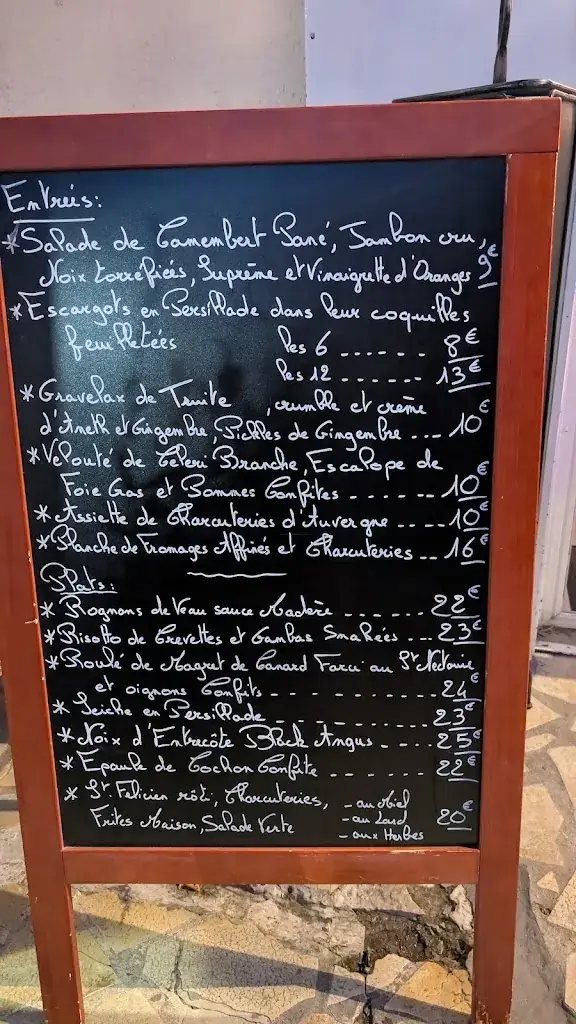 Entrées:
* Salade de Camembert Pané, Jambon cru,
Noix torréfiées, Suprême et Vinaigrette d'Oranges 9€
* Escargots en Persillade dans leur coquilles
feuilletées les 6 ...... 8€
les 12 ...... 13€
* Gravelax de Truite , crumble et crème
d'Aneth et Gingembre, Pickles de Gingembre ... 10€
* Velouté de Céleri Branche, Escalope de
Foie Gas et Pommes Confites ....... 10€
* Assiette de Charcuteries d'Auvergne .... 10€
* Planche de Fromages Affinés et Charcuteries .. 16€
Plats:
* Rognons de Veau sauce Madère ....... 22€
* Risotto de Crevettes et Gambas Snakées ... 23€
* Roulé de Magret de Canard Farci au St Nectaire
et oignons Confits - - - - - - - - - - 24€
* Seiche en Persillade - - - - - - - - - 23€
* Noix d'Entrecôte Black Angus .... 25€
* Epaule de Cochon Confite ------ 22€
* St Félicien rôti, Charcuteries, - au Miel
Frites Maison, Salade Verte - au Lard 20€
- aux Herbes